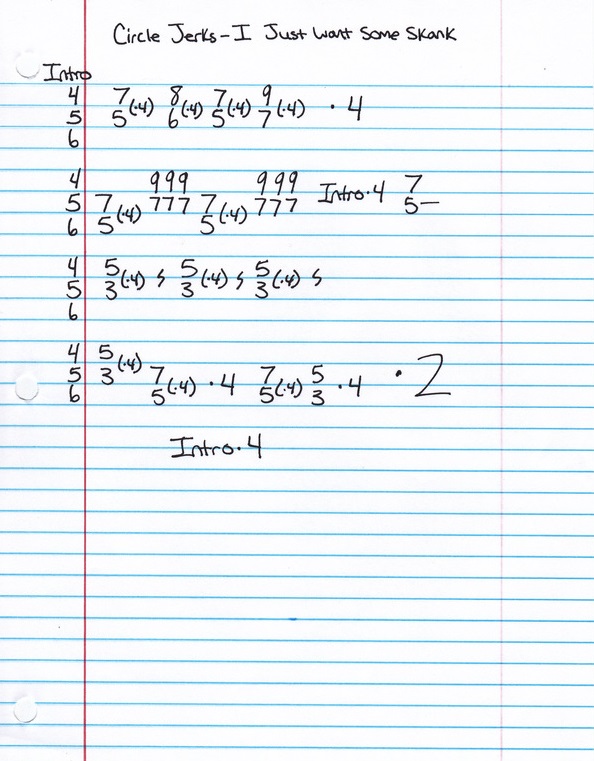 Circle Jerks - I Just Want Some Skank
Intro
4 7 (·4) 8 (·4) 7 (·4) 9 (·4) · 4
5 5 6 5 7
6
4 999 999 Intro·4 7
5 7 (·4) 777 7 (·4) 777 5—
6 5 5
4 5 (·4) 5 (·4) 5 (·4)
5 3 3 3
6
4 5 (·4)
5 3 7 (·4) · 4 7 (·4) 5 · 4 · 2
6 5 5 3
Intro·4